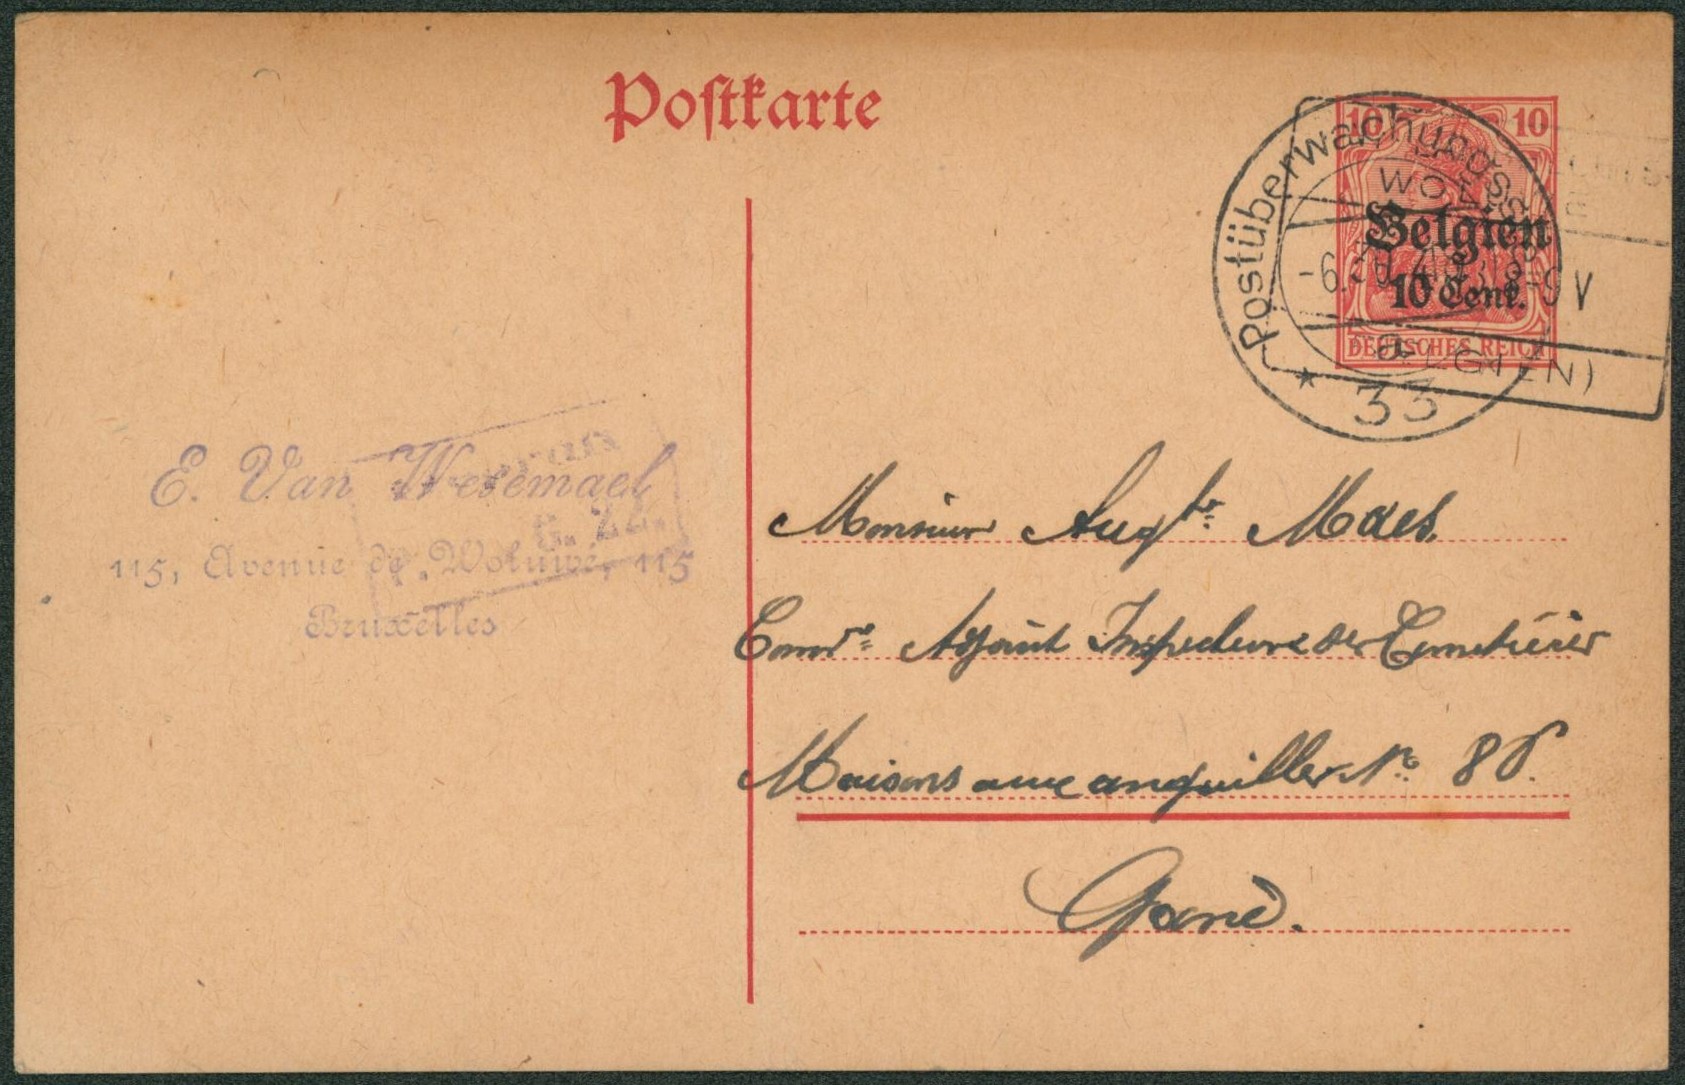 Postkarte
10 10
Belgien
10 Cent.
DEUTSCHES REICH
Postüberwachungs
33
E. Van Wesemael
115, Avenue de Woluwé, 115
Bruxelles
Monsieur Augte Maes.
Adjoint Inspecteur des Cimetières
Maisons aux anguilles No
Gand.